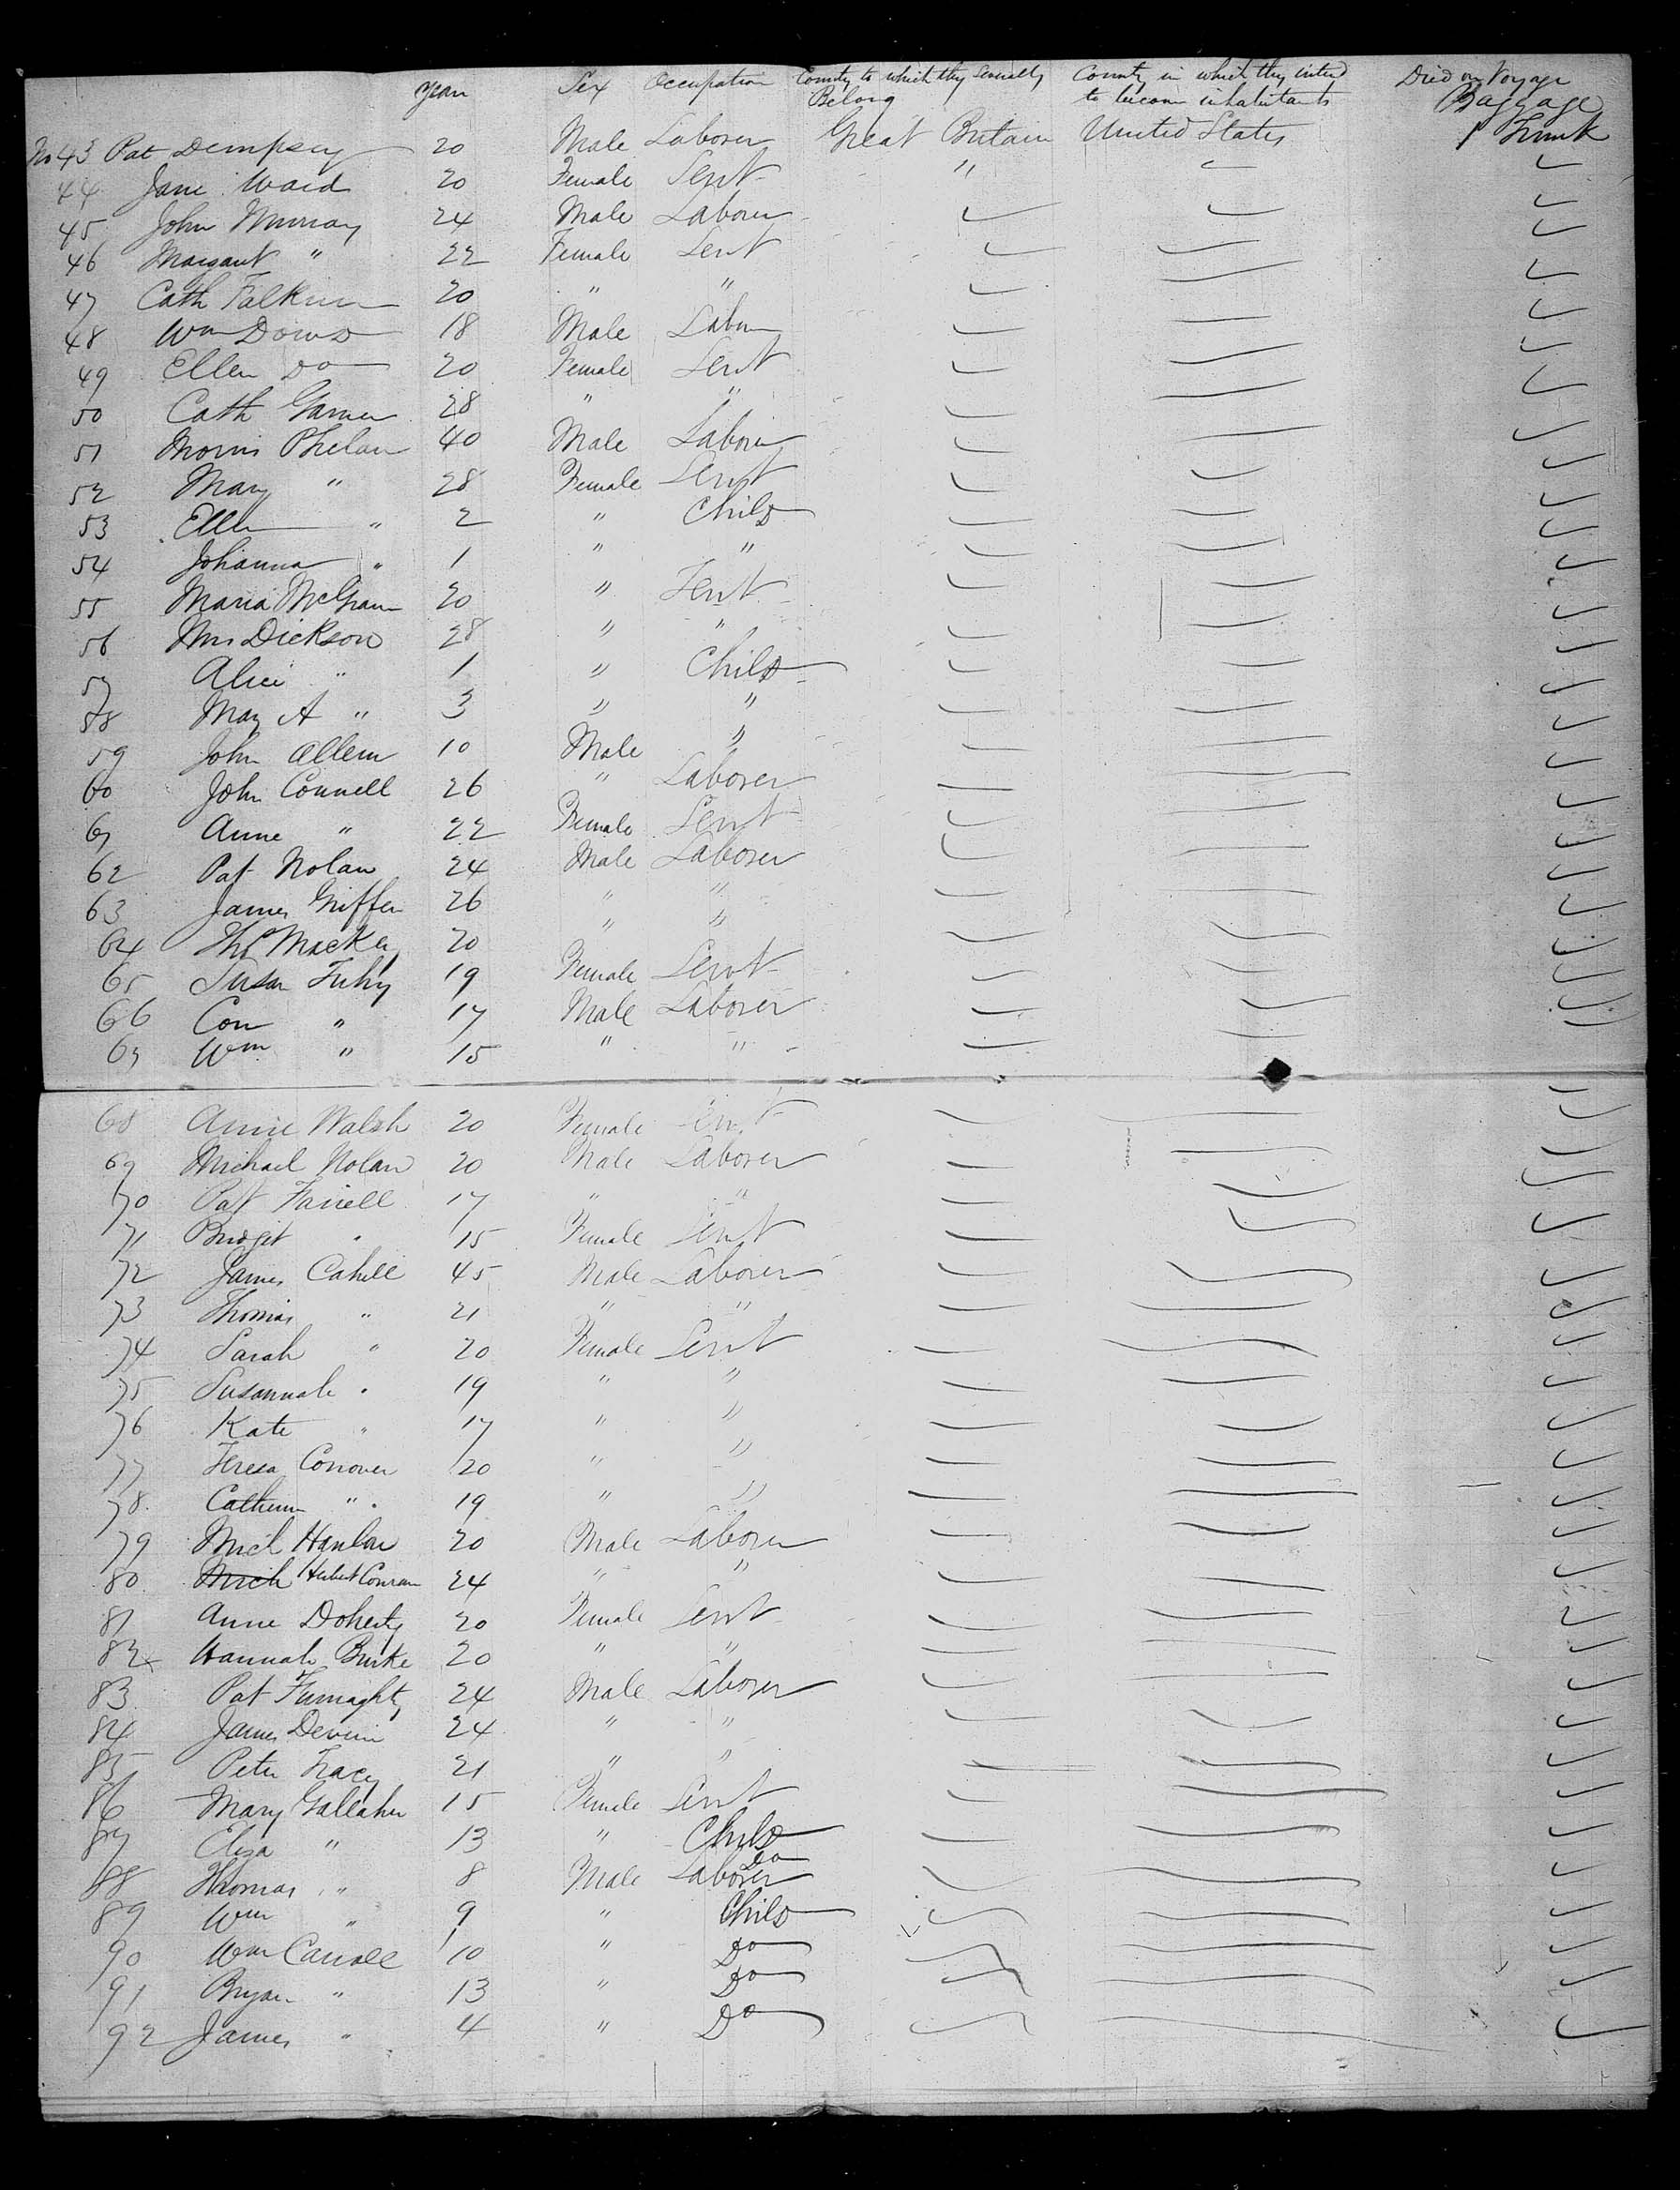 Years Sex Occupation Country to which they severally Belong Country in which they intend to become inhabitants Died on Voyage Baggage
No 43 Pat Dempsey 20 Male Laborer Great Britain United States 1 Trunk
44 Jane Ward 20 Female Servt "
45 John Murray 24 Male Laborer
46 Margaret " 22 Female Servt
47 Cath 20 " "
48 Wm Dowd 18 Male Labor
49 Ellen Do 20 Female Servt
50 Cath 28 " "
51 Morris Phelan 40 Male Laborer
52 Mary " 28 Female Servt
53 Ellen " 2 " Child
54 Johanna " 1 " "
55 Maria 20 " Servt
56 Mrs Dickson 28 " "
57 Alice " 1 " Child
58 Mary A " 3 " "
59 John Allen 10 Male "
60 John Connell 26 " Laborer
61 Anne " 22 Female Servt
62 Pat Nolan 24 Male Laborer
63 James Griffen 26 " "
64 Thos Mackey 20 " "
65 Susan 19 Female Servt
66 Con " 17 Male Laborer
67 Wm " 15 " "
68 Annie Walsh 20 Female Servt
69 Michael Nolan 20 Male Laborer
70 Pat Farrell 17 " "
71 Bridget " 15 Female Servt
72 James Cahill 45 Male Laborer
73 Thomas " 21 " "
74 Sarah " 20 Female Servt
75 Susannah " 19 " "
76 Kate " 17 " "
77 Teresa Conover 20 " "
78 Catherine " 19 " "
79 Mich Hanlon 20 Male Laborer
80 Mich Herbert 24 " "
81 Anne Doherty 20 Female Servt
82 Hannah Burke 20 " "
83 Pat 24 Male Laborer
84 James Devin 24 " "
85 Peter Tracey 21 " "
86 Mary Gallaher 15 Female Servt
87 Eliza " 13 " Child
88 Thomas " 8 Male Laborer Do
89 Wm " 9 " Child
90 Wm Carroll 10 " Do
91 Bryan " 13 " Do
92 James " 4 " Do